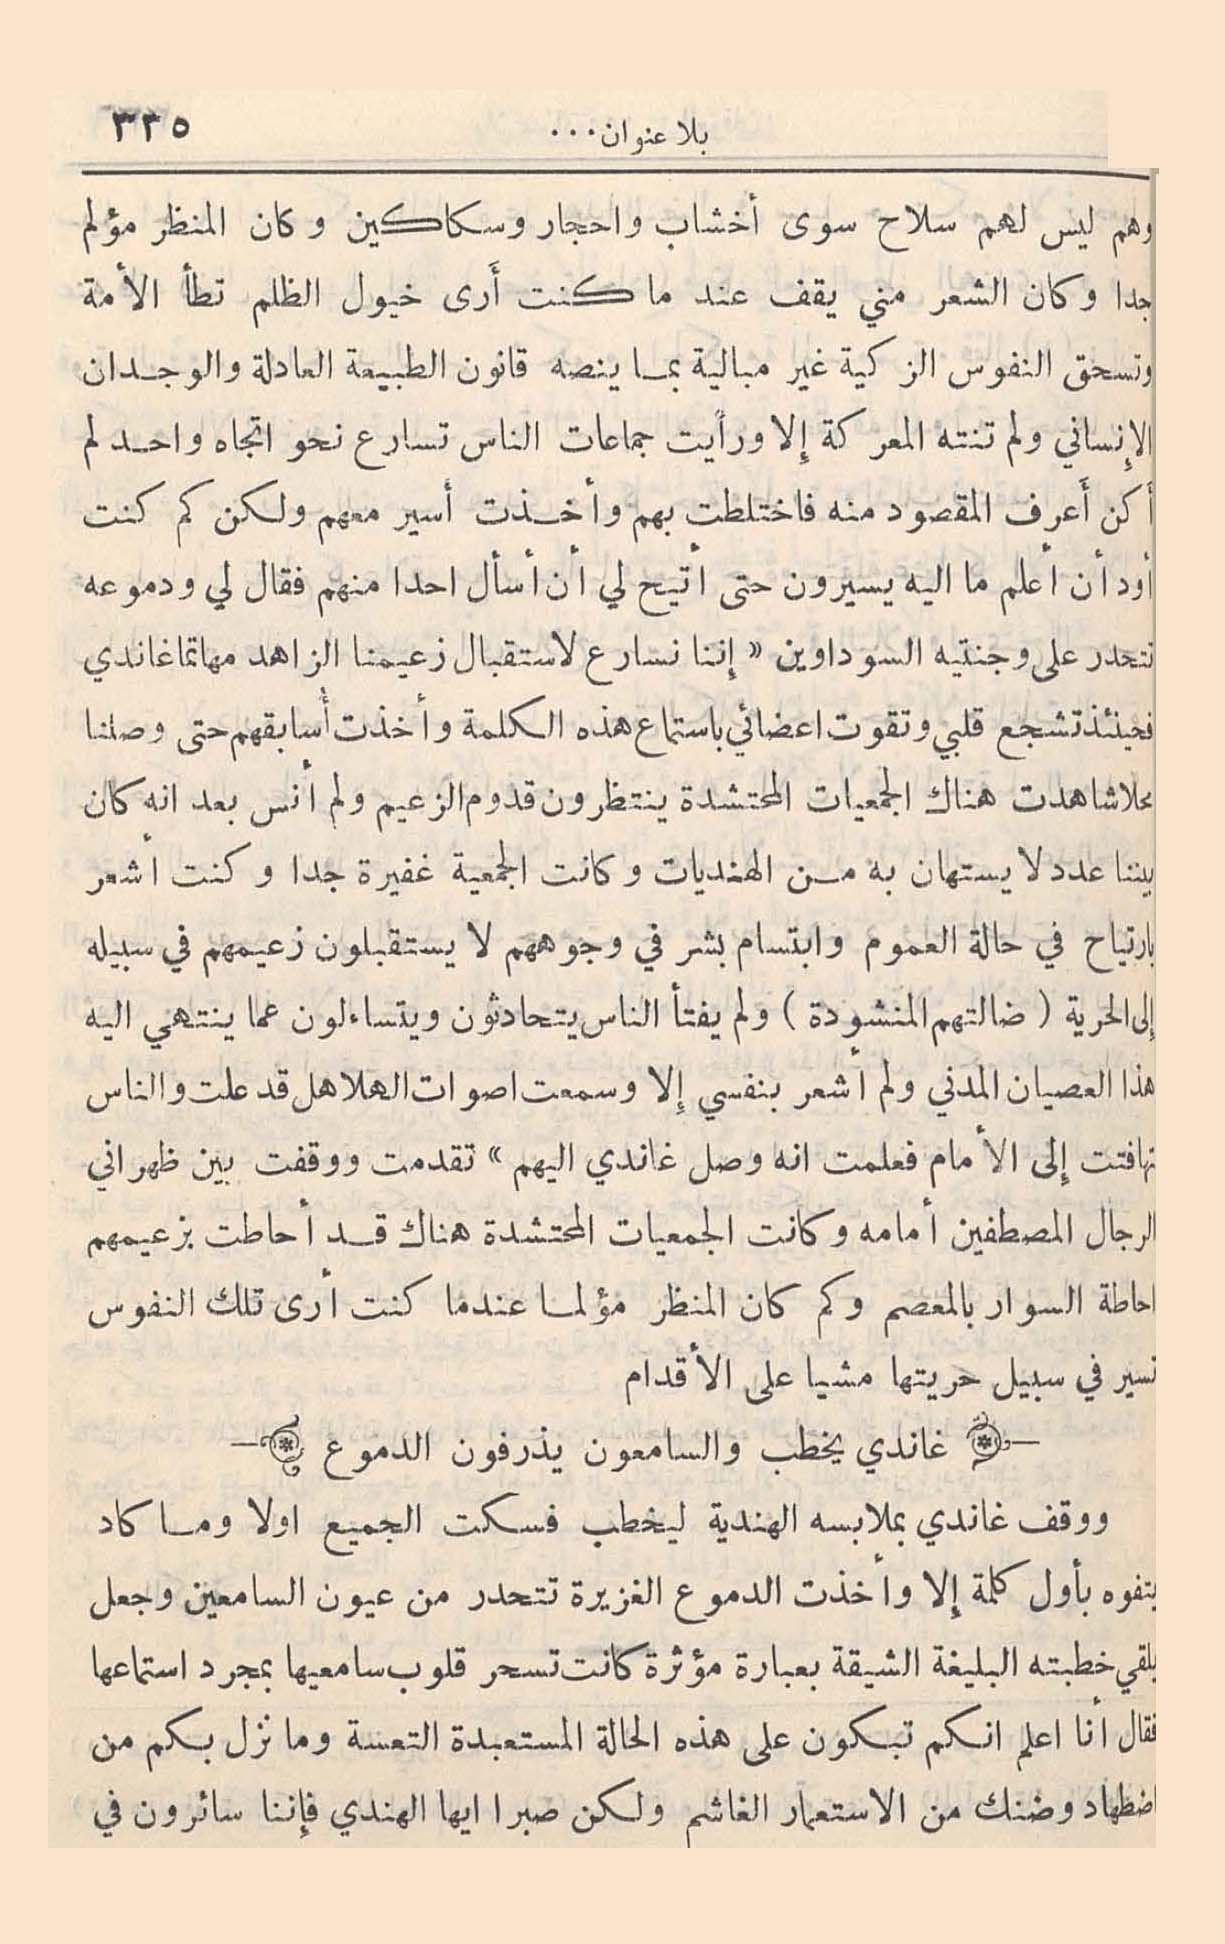 بلا عنوان... ٣٢٥
وهم ليس لهم سلاح سوى أخشاب واحجار وسكاكين وكان المنظر مؤلم
جدا وكان الشعر مني يقف عند ما كنت أَرى خيول الظلم تطأ الأمة
وتسحق النفوس الزكية غير مبالية بما ينصه قانون الطبيعة العادلة والوجدان
الإنساني ولم تنته المعركة إلا ورأيت جماعات الناس تسارع نحو اتجاه واحد لم
أَكن أَعرف المقصود منه فاختلطت بهم وأخذت أسير معهم ولكن كم كنت
أود أن أعلم ما اليه يسيرون حتى أتيح لي أن أسأل احدا منهم فقال لي ودموعه
تتحدر على وجنتيه السوداوين « إننا نسارع لاستقبال زعيمنا الزاهد مهاتما غاندي
فحينئذ تشجع قلبي وتقوت اعضائي باستماع هذه الكلمة وأخذت أسابقهم حتى وصلنا
محلا شاهدت هناك الجمعيات المحتشدة ينتظرون قدوم الزعيم ولم أنس بعد انه كان
بيننا عدد لا يستهان به من الهنديات وكانت الجمعية غفيرة جدا وكنت أشعر
بارتياح في حالة العموم وابتسام بشر في وجوههم لا يستقبلون زعيمهم في سبيله
إلى الحرية ( ضالتهم المنشودة ) ولم يفتأ الناس يتحادثون ويتساءلون عما ينتهي اليه
هذا العصيان المدني ولم أشعر بنفسي إلا وسمعت اصوات الهلاهل قد علت والناس
تهافتت إلى الأمام فعلمت انه وصل غاندي اليهم » تقدمت ووقفت بين ظهراني
الرجال المصطفين أمامه وكانت الجمعيات المحتشدة هناك قد أحاطت بزعيمهم
احاطة السوار بالمعصم وكم كان المنظر مؤلما عندما كنت أرى تلك النفوس
تسير في سبيل حريتها مشيا على الأقدام
غاندي يخطب والسامعون يذرفون الدموع
ووقف غاندي بملابسه الهندية ليخطب فسكت الجميع اولا وما كاد
يتفوه بأول كلمة إلا وأخذت الدموع الغزيرة تتحدر من عيون السامعين وجعل
يلقي خطبته البليغة الشيقة بعبارة مؤثرة كانت تسحر قلوب سامعيها بمجرد استماعها
فقال أنا اعلم انكم تبكون على هذه الحالة المستعبدة التعسة وما نزل بكم من
اضطهاد وضنك من الاستعمار الغاشم ولكن صبرا ايها الهندي فإننا سائرون في